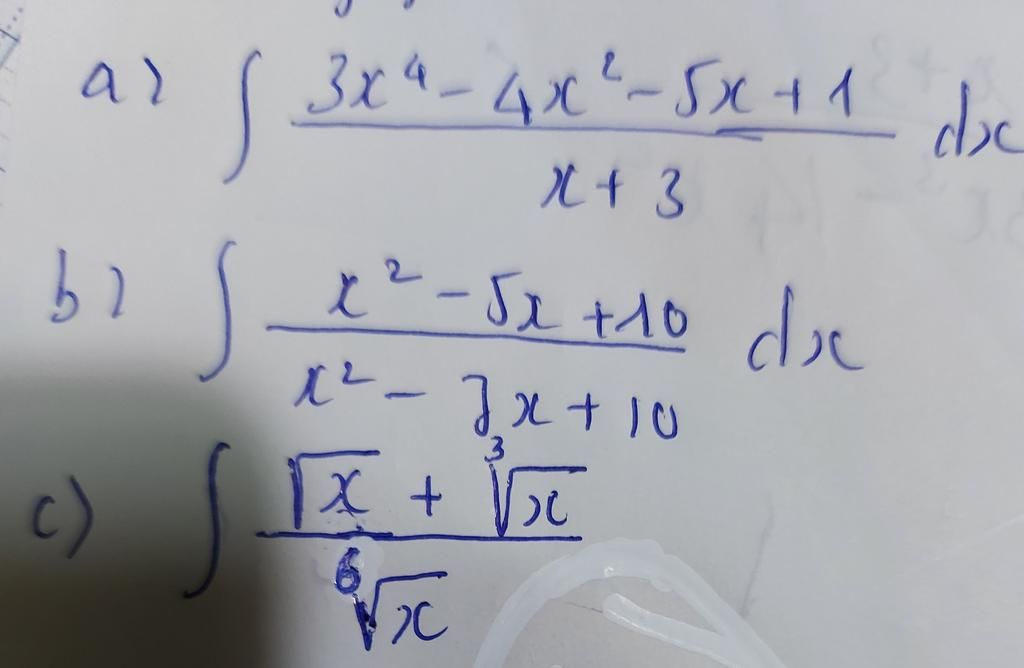 a) ∫ (3x⁴ - 4x² - 5x + 1)/(x + 3) dx
b) ∫ (x² - 5x + 10)/(x² - 7x + 10) dx
c) ∫ (√x + ³√x)/⁶√x